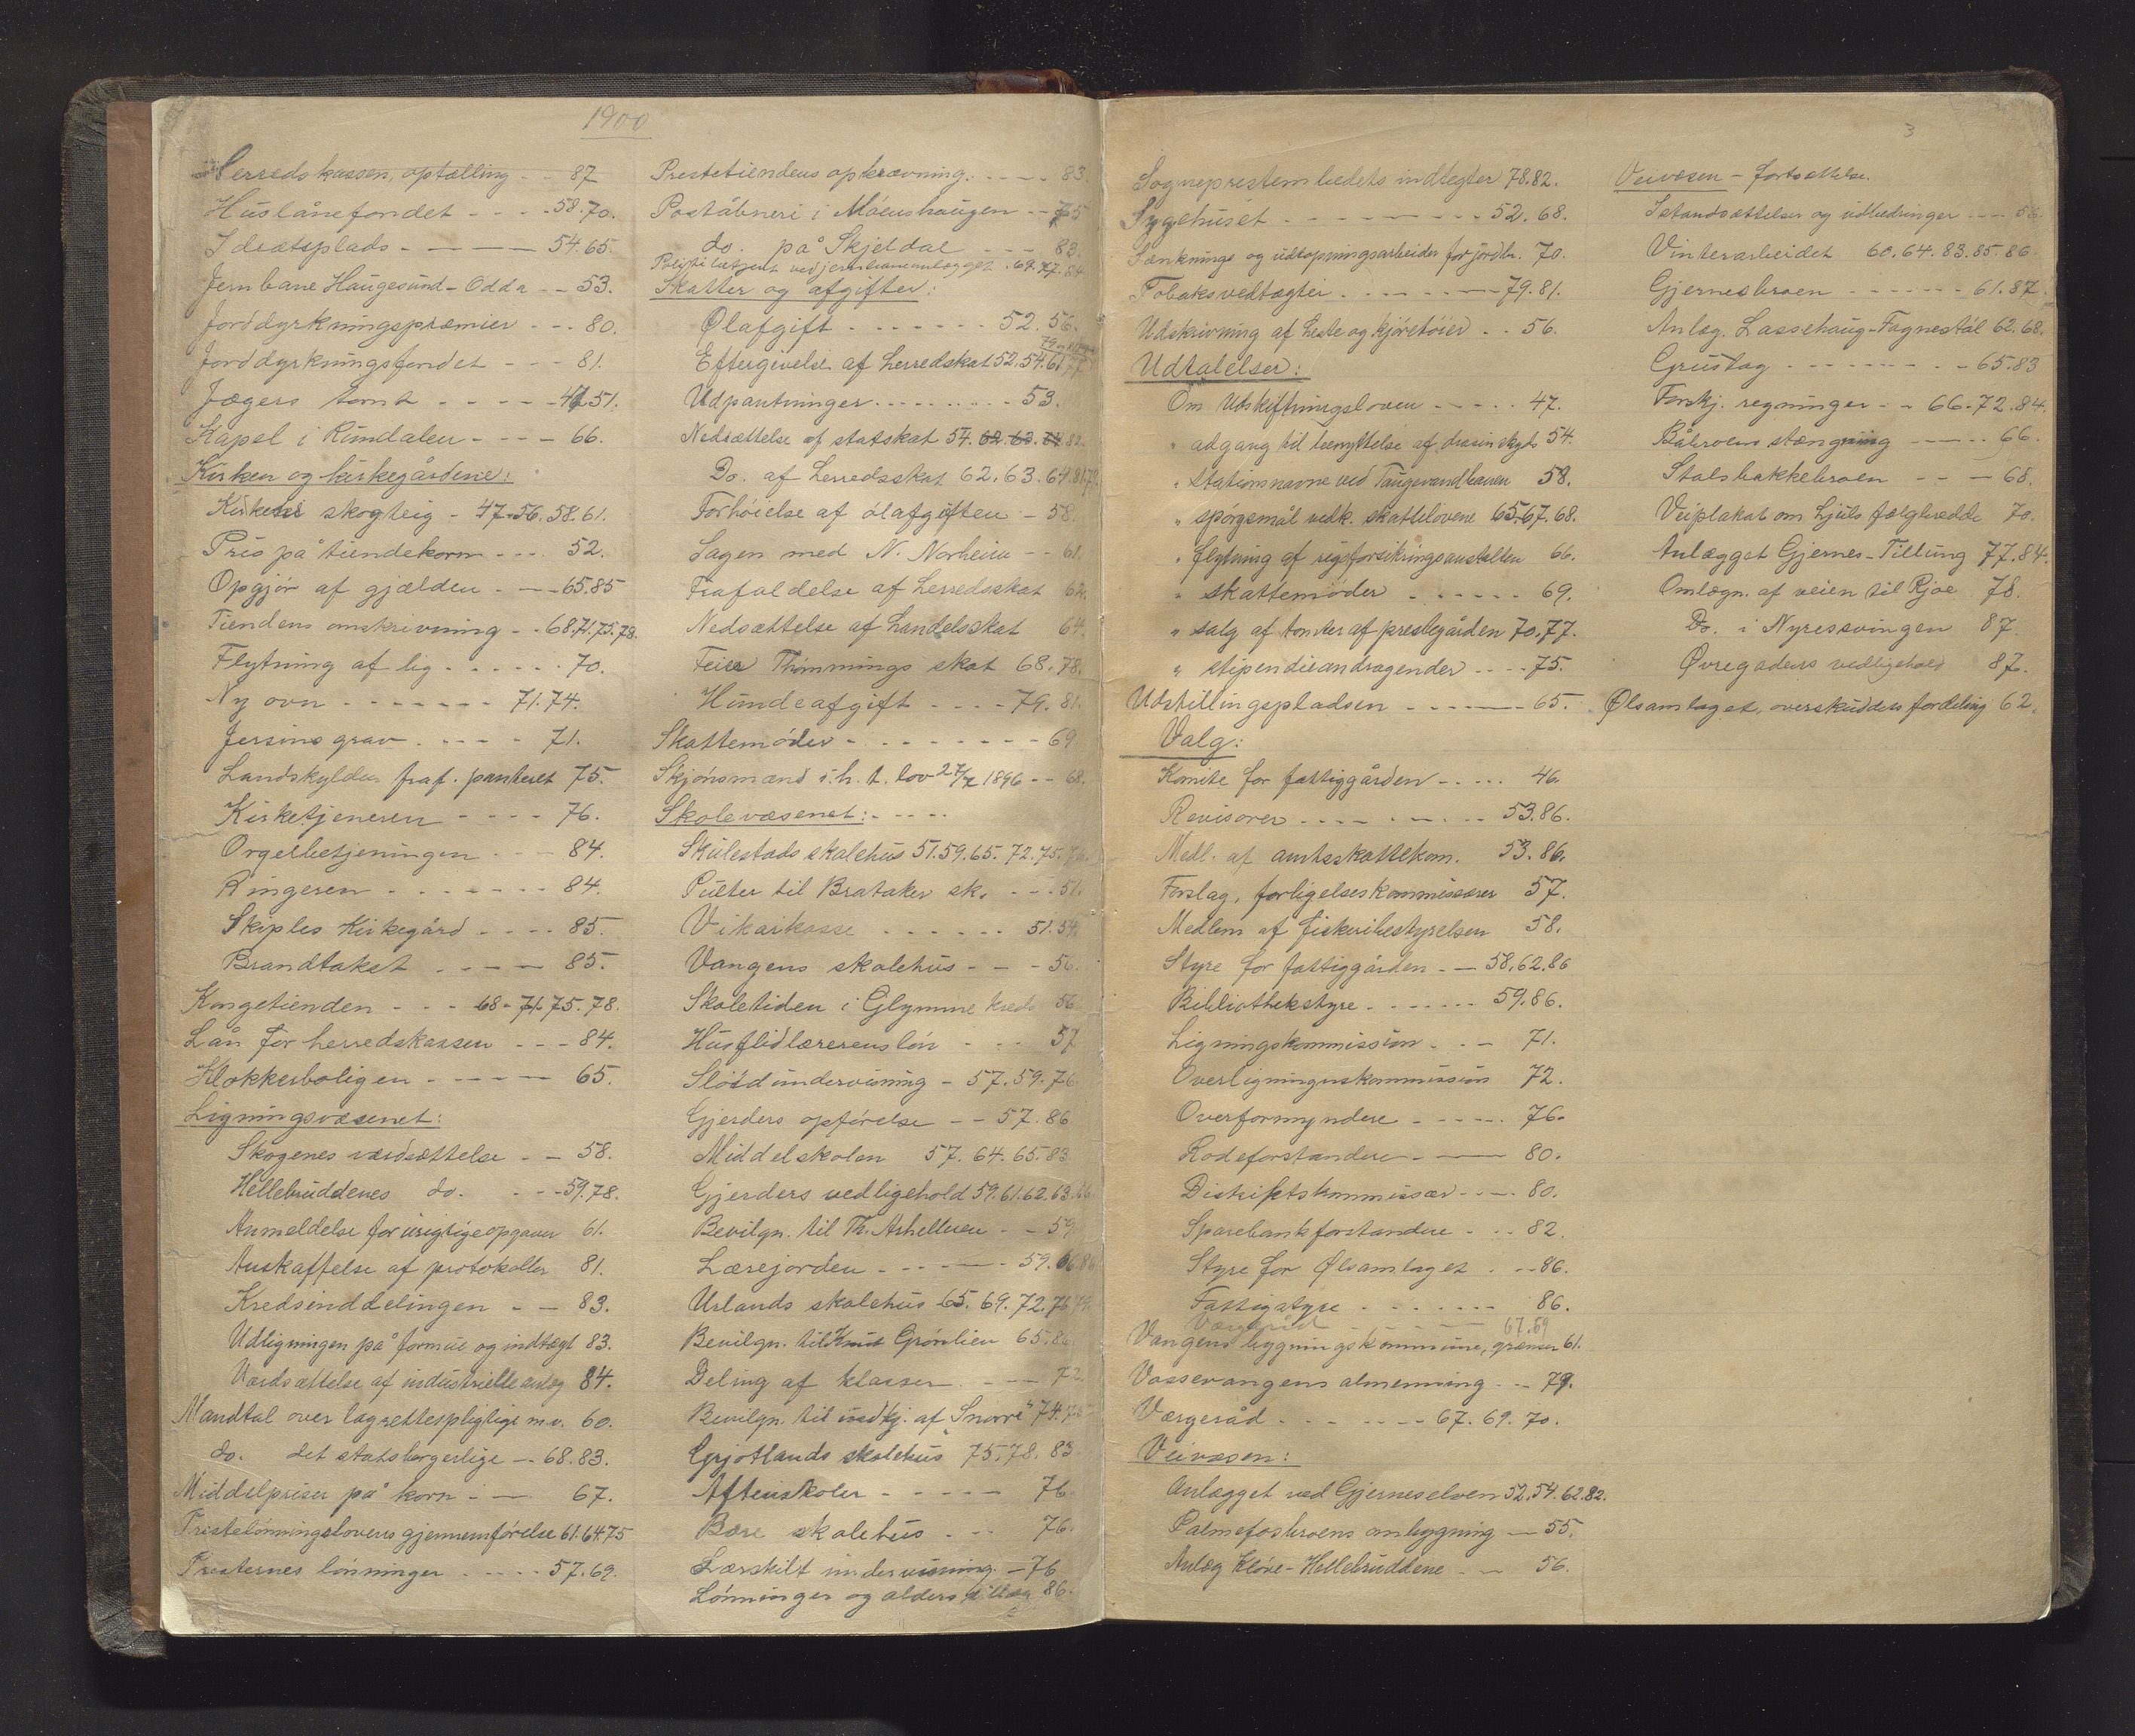 1900
Herredskassen, optælling - - 87
Huslånefondet - - - - 58.70.
Idrætsplads - - - - 54.65.
Jernbane Haugesund - Odda - - 53.
Jorddyrkningspræmier - - - 80.
Jorddyrkningsfondet - - - 81.
Jægers tomt - - - - 47.51.
Kapel i Rundalen - - - - 66.
Kirken og kirkegårdene:
Kirkens skogteig - 47.56.58.61.
Pris på tiendekorn - - - 52.
Opgjör af gjælden - - - 65.85
Tiendens omskrivning - - 68.71.75.78.
Flytning af lig - - - - - 70.
Ny ovn - - - - - - - 71.74.
Jersins grav - - - - - 71.
Landskylden fraf. panteret 75.
Kirketjeneren - - - - 76.
Orgelbetjeningen - - - 84.
Ringeren - - - - - - - 84.
Skiples Kirkegård - - - - 85.
Brandtaket - - - - - 85.
Kongetienden - - - 68-71.75.78.
Lån for herredskassen - - - 84.
Klokkerboligen - - - - - 65.
Ligningsvæsenet:
Skogenes værdsættelse - - 58.
Hellebruddenes do. - - - 59.78.
Anmeldelse for urigtige opgaver 61.
Anskaffelse af protokoller 81.
Kredsinddelingen - - 83.
Udligningen på formue og indtægt 83.
Værdsættelse af industrielle anlæg 84.
Mandtal over lagrettespligtige m.v. 60.
do. det statsborgerlige - - 68.83.
Middelpriser på korn - - 67.
Prestelønningslovens gjennemförelse 61.64.75
Presternes lönninger - - - - - 57.69.
Prestetiendens opkrævning - - - - - 83.
Poståbneri i Móenshaugen - - 75
do. på Skjeldal - - - 83.
Politibetjent ved jernbaneanlægget . 69.77.84
Skatter og afgifter:
Ølafgift - - - - - - - 52.56.
Eftergivelse af herredskat 52.54.61.77
Udpantninger - - - - - - - 53.
Nedsættelse af statskat 54. 62. 63. 64 82.
Do. af herredsskat 62.63.64.81.79.
Forhöielse af ólafgiften - 58.
Sagen med N. Norheim - - 61.
Frafaldelse af herredsskat 62.
Nedsættelse af handelsskat 64.
Feier Thimmings skat 68.78.
Hundeafgift - - - - 79.81.
Skattemöder - - - - - - - 69
Skjönsmænd i. h. t. lov 27/7 1896 - - 68.
Skolevæsenet: - - - -
Skulestads skolehus 51.59.65.72.75.
Pulter til Brataker sk. - - - 51.
Vikarkasse - - - - - - 51.54.
Vangens skolehus - - - 56.
Skoletiden i Glymme kreds 56.
Husflidlærerens lón - - - 57
Slöidundervisning - 57.59.76.
Gjerders opförelse - - 57.86.
Middelskolen 57.64.65.83.
Gjerders vedligehold 59.61.62.63.66.
Bevilgn. til Th. Arhelleren - - 59
Lærejorden - - - - - - 59.66.86
Urlands skolehus 65.69.72.76.79.
Bevilgn. til Knut Grönlien 65.86
Deling af klasser - - - 72.
Bevilgn. til indkj. af "Snorre" 74.78
Grjotlands skolehus 75.78.83
Aftenskoler - - - - - 76.
Børe skolehus - - - 76.
Særskilt undervisning - 76
Lönninger og alderstillæg 86.
3
Sogneprestembedets indtægter 78.82.
Sygehuset - - - - - - - - - 52.68.
Sænknings og udtapningsarbeider for jordbr. 70.
Tobaksvedtægter - - - - - - - 79.81.
Udskrivning af heste og kjöretöier - - 56.
Udtalelser:
Om Utskiftningsloven - - - - - 47.
" adgang til benyttelse af dræsin skyds 54.
" stationsnavne ved Taugevandbanen 58.
" spörgsmål vedk. skattelovene 65.67.68.
" flytning af sygeforsikringsanstalten 66.
" skattemöder - - - - - - 69.
" salg af tomter af prestegården 70.77.
" stipendieandragender - - - - 75.
Udstillingspladsen - - - - - - 65.
Valg:
Komite for fattiggården - - - - - 46.
Revisorer - - - - - - - - 53.86.
Medl. af amtsskattekom. 53.86.
Forslag, forligelseskommissærer 57.
Medlem af fiskeribestyrelsen 58.
Styre for fattiggården - - 58.62.86
Bibliothekstyre - - - - - - - 59.86.
Ligningskommission - - - 71.
Overligningsskommission 72.
Overformyndere - - - - - 76.
Rodeforstandere - - - - 80.
Distriktskommissær - - - - 80.
Sparebankforstandere - - - 82.
Styre for Ølsamlaget - - - 86.
Fattigstyre - - - - - - - 86.
Vergeråd - - - - - - 67.69
Vangens bygningskommune, grænser 61.
Vossevangens almenning - - 79.
Vergeråd - - - - - - - 67.69.70.
Veivæsen:
Anlægget ved Gjerneselven 52.54.62.82.
Palmefosbroens ombygning - - 55.
Anlæg Klöve - Hellebruddene - - 56.
Veivæsen - fortsættelse.
Istandsættelser og udbedringer - - - 56.
Vinterarbeidet 60.64.83.85.86.
Gjernesbroen - - - - - - - 61.87.
Anlæg. Lassehaug - Fagnestöl 62.68.
Grustag - - - - - - - - 65.83
Forskj. regninger - - 66-72.84.
Båbroens stængning - - - - 66.
Stalsbakkebroen - - - 68.
Veiplakat om hjuls fælgbredde 70.
Anlægget Gjernes - Tillung 77.84.
Omlægn. af veien til Rjoe 78.
Do. i Nyresvingen 87.
Øvregadens vedligehold 87.
Ølsamlaget, overskuddets fordeling 62.